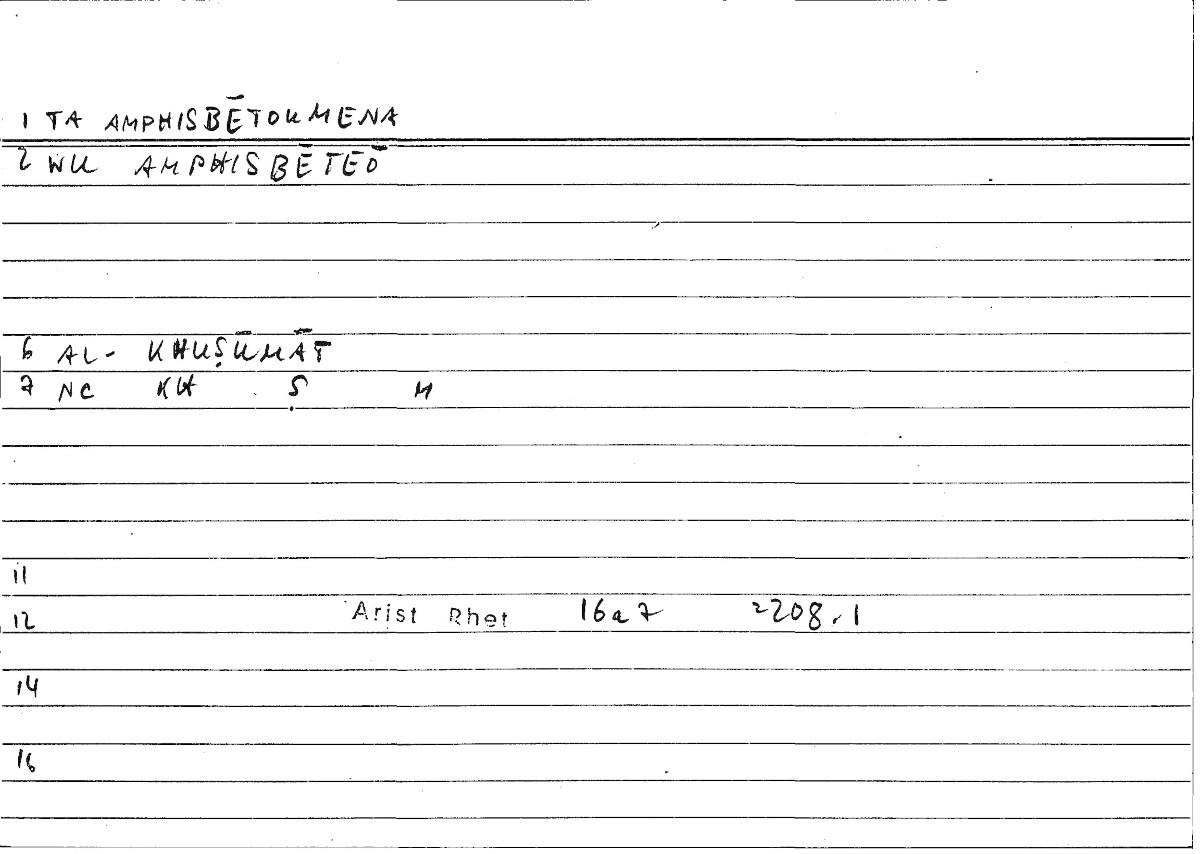 1 TA AMPHISBĒTOUMENA
2 WU AMPHISBĒTEŌ
6 AL- KHUṢŪMĀT
7 NC KH Ṣ M
11
12 Arist Rhet 16a7 =208.1
14
16